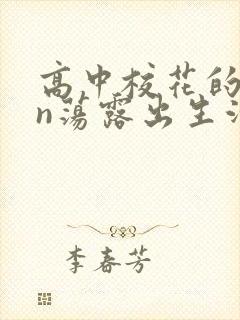 高中校花的
n荡露出生活
李春芳